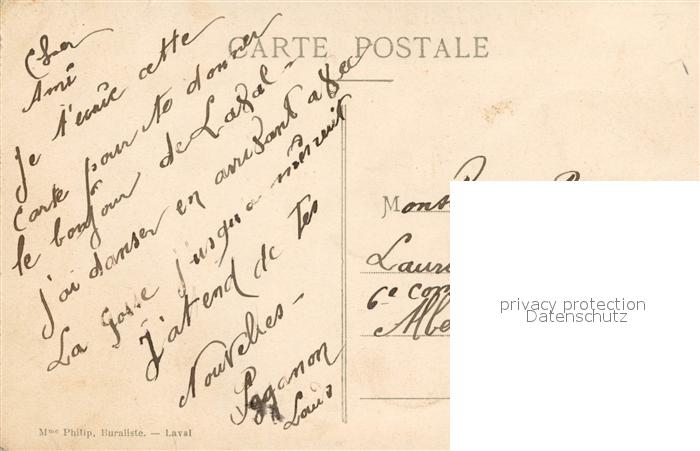 CARTE POSTALE
Cher
Ami
Je t'envie cette
carte pour te donner
le bonjour de Laval -
j'ai danser en arrivant avec
La gosse jusqu'a minenuit
j'atend de tes
Nouvelles -
Louis
M
Lauri
6e Com
Albe
privacy protection
Datenschutz
Mme Philip, Buraliste. — Laval